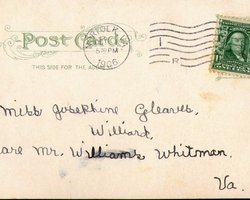 Post Card
THIS SIDE FOR THE ADDRESS
NORFOLK, VA.
5 PM
1906
I
R
Miss Josephine Gleaves,
Williard,
are Mr. Williams Whitman.
Va.